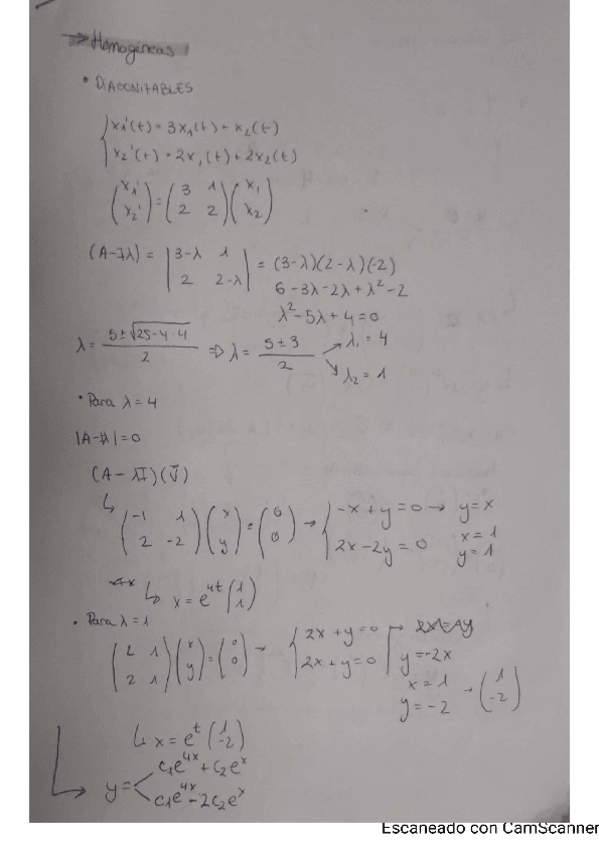 → Homogéneas
• DIAGONIZABLES
{ x1'(t) = 3x1(t) + x2(t)
x2'(t) = 2x1(t) + 2x2(t)
(x1' x2') = (3 1 2 2)(x1 x2)
(A-Iλ) = |3-λ 1 2 2-λ| = (3-λ)(2-λ)(-2)
6-3λ-2λ+λ²-2
λ²-5λ+4=0
λ = 5±√25-4·4 / 2 ⇒ λ = 5±3 / 2 → λ1 = 4
λ2 = 1
• Para λ=4
|A-λI|=0
(A-λI)(v̄)
↳ (-1 1 2 -2)(x y) = (0 0) → { -x+y=0 → y=x
2x-2y=0 x=1 y=1
↳ x = e^4t (1 1)
• Para λ=1
(2 1 2 1)(x y) = (0 0) → { 2x+y=0
2x+y=0 y=-2x
x=1
y=-2 → (1 -2)
↳ x = e^t (1 -2)
y = < c1e^4x + c2e^x
c1e^4x - 2c2e^x
Escaneado con CamScanner